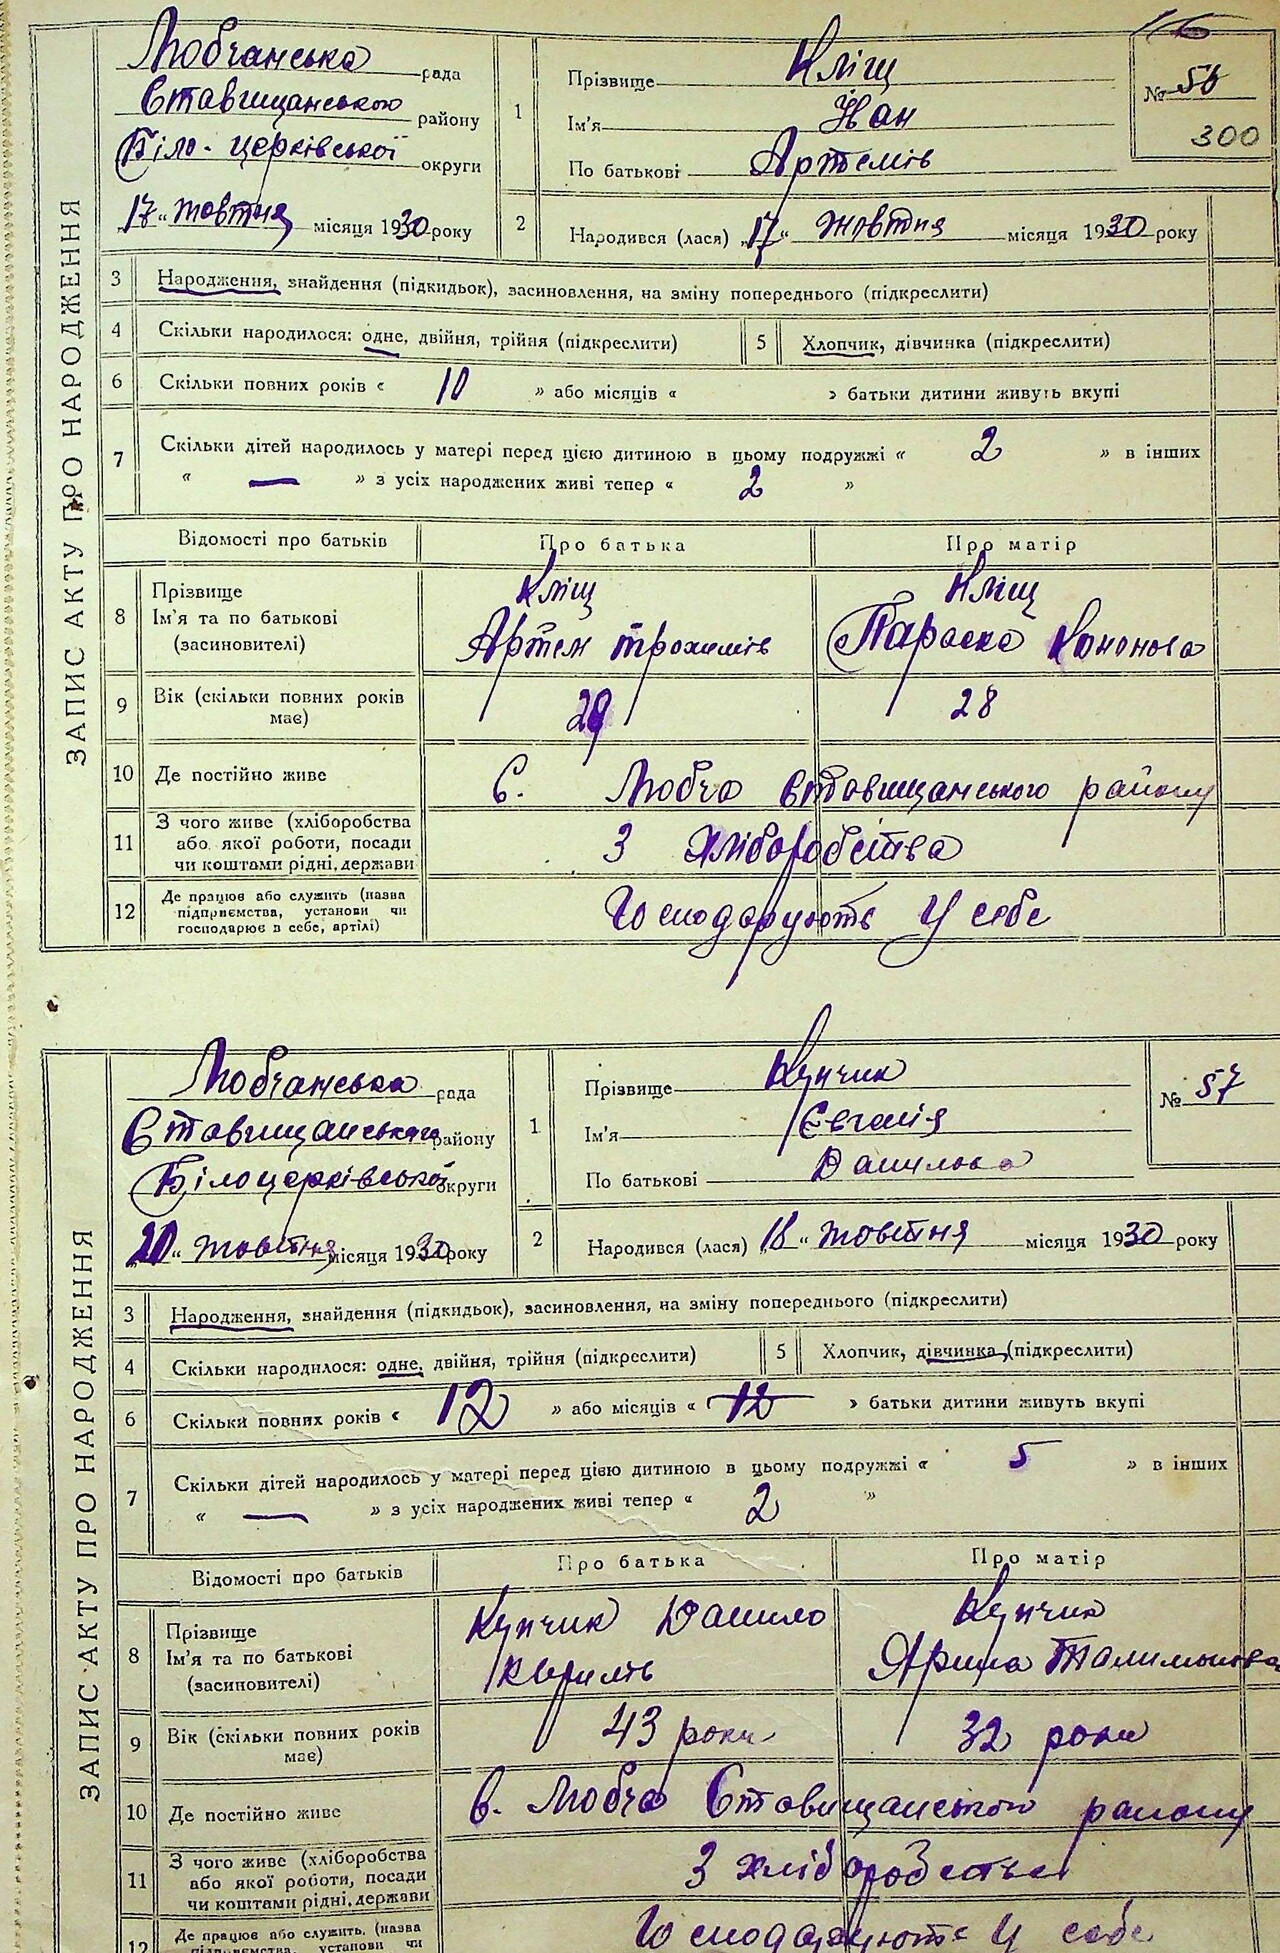 ЗАПИС АКТУ ПРО НАРОДЖЕННЯ
Любчанська рада
Ставищанською району
Біло-церківської округи
„17“ жовтня місяця 1930 року
1 Прізвище Кліщ
Ім'я Іван
По батькові Артемів
№ 56
300
2 Народився (лася) „17“ жовтня місяця 1930 року
3 Народження, знайдення (підкидьок), засиновлення, на зміну попереднього (підкреслити)
4 Скільки народилося: одне, двійня, трійня (підкреслити) 5 Хлопчик, дівчинка (підкреслити)
6 Скільки повних років « 10 » або місяців « » батьки дитини живуть вкупі
7 Скільки дітей народилось у матері перед цією дитиною в цьому подружжі « 2 » в інших
« — » з усіх народжених живі тепер « 2 »
Відомості про батьків Про батька Про матір
8 Прізвище Кліщ Кліщ
Ім'я та по батькові Артем Трохимів Параска Кононова
(засиновителі)
9 Вік (скільки повних років має) 29 28
10 Де постійно живе С. Любча Ставищанського району
11 З чого живе (хліборобства
або якої роботи, посади З хліборобства
чи коштами рідні, держави
12 Де працює або служить (назва
підприємства, установи чи Господарують у себе
господарює в себе, артілі)
ЗАПИС АКТУ ПРО НАРОДЖЕННЯ
Любчанська рада
Ставищанського району
Білоцерківської округи
„20“ жовтня місяця 1930 року
1 Прізвище Купчик
Ім'я Євгенія
По батькові Данилова
№ 57
2 Народився (лася) „18“ жовтня місяця 1930 року
3 Народження, знайдення (підкидьок), засиновлення, на зміну попереднього (підкреслити)
4 Скільки народилося: одне, двійня, трійня (підкреслити) 5 Хлопчик, дівчинка (підкреслити)
6 Скільки повних років « 12 » або місяців « 12 » батьки дитини живуть вкупі
7 Скільки дітей народилось у матері перед цією дитиною в цьому подружжі « 5 » в інших
« — » з усіх народжених живі тепер « 2 »
Відомості про батьків Про батька Про матір
8 Прізвище Купчик Данило Купчик
Ім'я та по батькові Кирилів Ярина
(засиновителі)
9 Вік (скільки повних років має) 43 роки 32 роки
10 Де постійно живе с. Любча Ставищанського району
11 З чого живе (хліборобства
або якої роботи, посади З хліборобства
чи коштами рідні, держави
12 Де працює або служить, (назва Господарують у себе
підприємства, установи чи